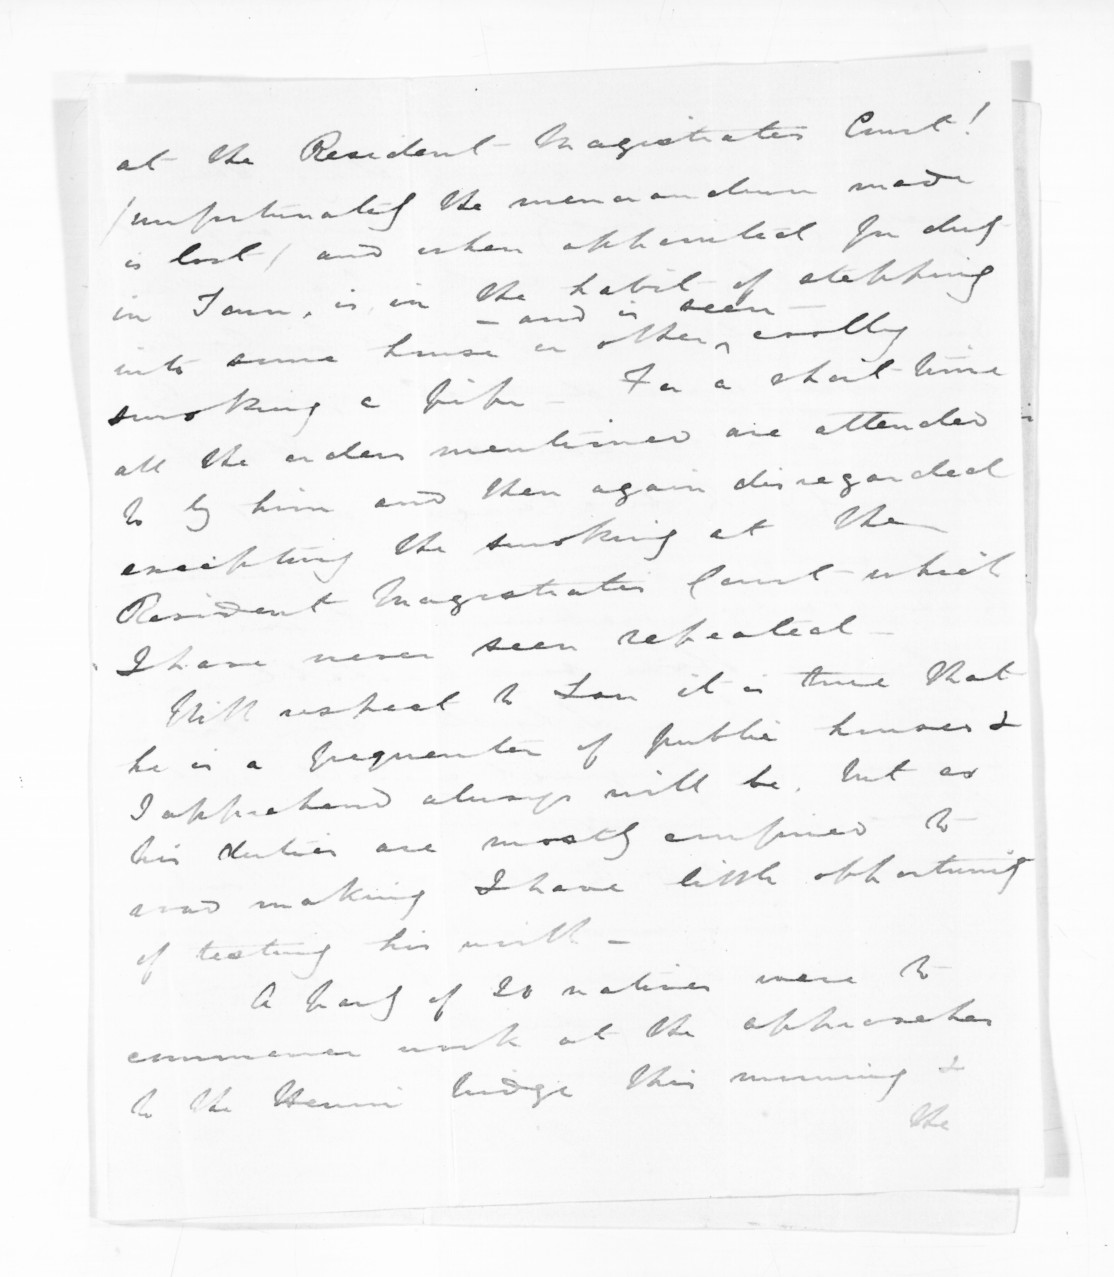 at the Resident Magistrates Court!
(unfortunately the memorandum made
is lost) and when appointed for duty
in Town, is, in the habit of stepping
- and is seen -
into some house or other, coolly
smoking a pipe - For a short time
all the orders mentioned are attended
to by him and then again disregarded
excepting the smoking at the
Resident Magistrates Court which
I have never seen repeated -
With respect to it is true that
he is a frequenter of public houses &
I apprehend always will be, but as
his duties are mostly confined to
road making I have little opportunity
of testing his -
A party of 20 natives were to
commence work at the approaches
to the bridge this morning &
the